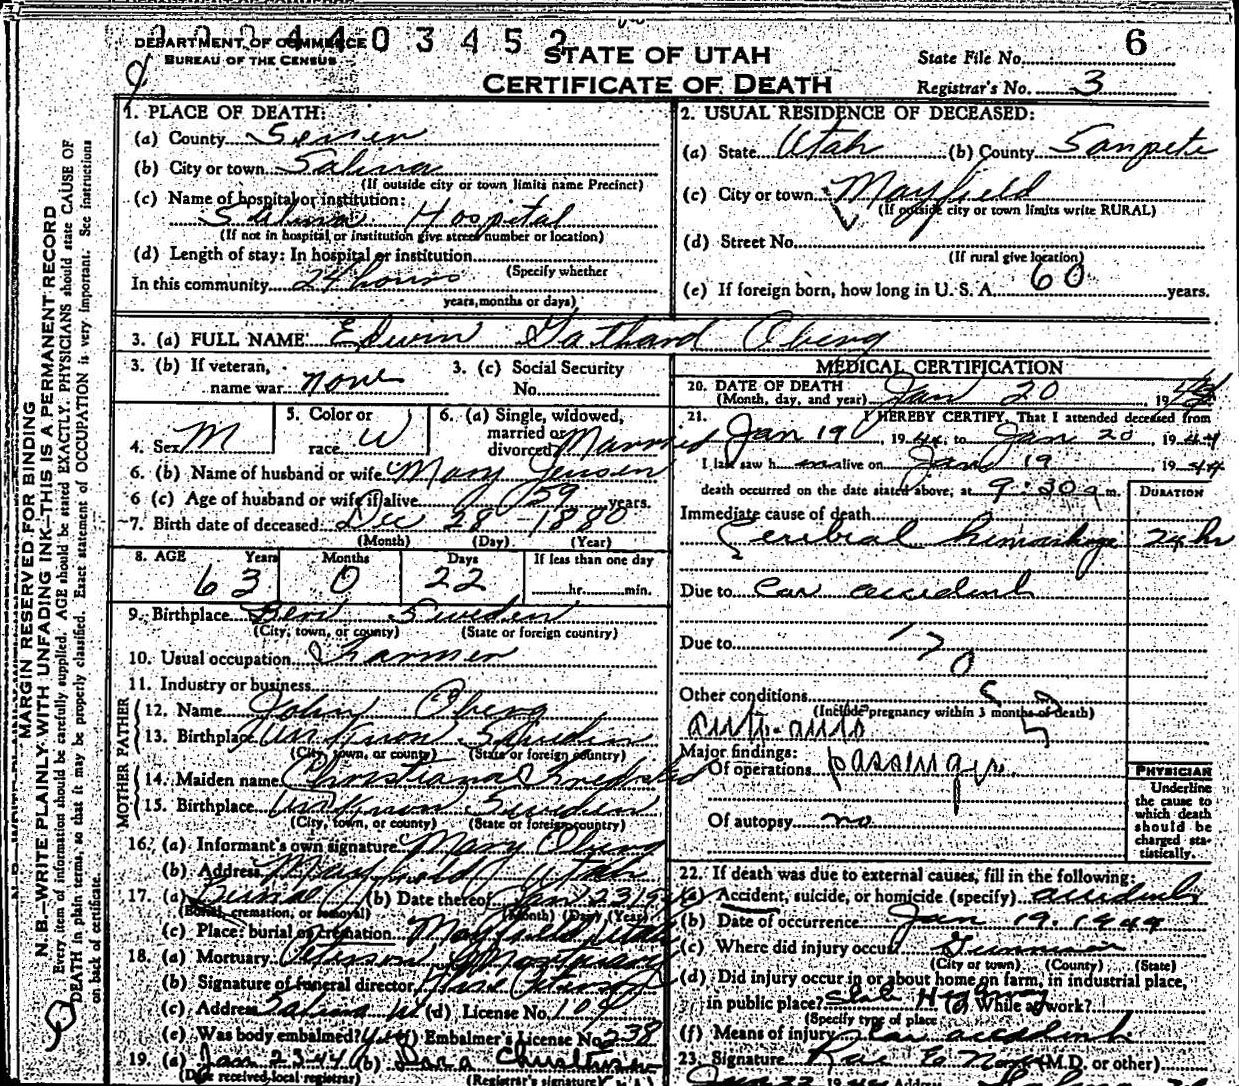 DEPARTMENT OF COMMERCE
BUREAU OF THE CENSUS
4 4 0 3 4 5 2
STATE OF UTAH
CERTIFICATE OF DEATH
State File No. 6
Registrar's No. 3
MARGIN RESERVED FOR BINDING
N. B.—WRITE PLAINLY WITH UNFADING INK—THIS IS A PERMANENT RECORD
Every item of information should be carefully supplied. AGE should be stated EXACTLY. PHYSICIANS should state CAUSE OF
DEATH in plain terms, so that it may be properly classified. Exact statement of OCCUPATION is very important. See instructions
on back of certificate.
1. PLACE OF DEATH:
(a) County Sevier
(b) City or town Salina
(If outside city or town limits name Precinct)
(c) Name of hospital or institution:
Salina Hospital
(If not in hospital or institution give street number or location)
(d) Length of stay: In hospital or institution
(Specify whether
In this community 24 hours
years, months or days)
2. USUAL RESIDENCE OF DECEASED:
(a) State Utah (b) County Sanpete
(c) City or town Mayfield
(If outside city or town limits write RURAL)
(d) Street No.
(If rural give location)
(e) If foreign born, how long in U. S. A. 60 years.
3. (a) FULL NAME Edwin Gathard Oberg
3. (b) If veteran, name war none
3. (c) Social Security No.
4. Sex M
5. Color or race W
6. (a) Single, widowed, married or divorced Married
6. (b) Name of husband or wife Mary Jensen
6 (c) Age of husband or wife if alive 59 years.
7. Birth date of deceased Dec 28 - 1880
(Month) (Day) (Year)
8. AGE Years Months Days If less than one day
63 0 22 hr. min.
9. Birthplace Sweden
(City, town, or county) (State or foreign country)
10. Usual occupation Farmer
11. Industry or business
FATHER
12. Name John Oberg
13. Birthplace Unknown Sweden
(City, town, or county) (State or foreign country)
MOTHER
14. Maiden name Christiana
15. Birthplace Unknown Sweden
(City, town, or county) (State or foreign country)
16. (a) Informant's own signature Mary Oberg
(b) Address Mayfield Utah
17. (a) Burial (b) Date thereof Jan 23 1944
(Burial, cremation, or removal) (Month) (Day) (Year)
(c) Place: burial or cremation Mayfield Utah
18. (a) Mortuary Peterson Mortuary
(b) Signature of funeral director Peterson
(c) Address Salina Ut (d) License No. 109
(e) Was body embalmed? yes (f) Embalmer's License No. 238
19. (a) Jan 23-44 (b)
(Date received local registrar) (Registrar's signature)
MEDICAL CERTIFICATION
20. DATE OF DEATH
(Month, day, and year) Jan 20 1944
21. I HEREBY CERTIFY, That I attended deceased from
Jan 19, 1944, to Jan 20, 1944
I last saw h im alive on Jan 19, 1944
death occurred on the date stated above; at 9:30 a m.
DURATION
Immediate cause of death
Cerebral hemorrhage 24 hr
Due to Car accident
Due to
170
Other conditions
(Include pregnancy within 3 months of death)
auto-auto
Major findings:
Of operations passenger
Of autopsy no
PHYSICIAN
Underline
the cause to
which death
should be
charged sta-
tistically.
22. If death was due to external causes, fill in the following:
(a) Accident, suicide, or homicide (specify) accident
(b) Date of occurrence Jan 19. 1944
(c) Where did injury occur Gunnison
(City or town) (County) (State)
(d) Did injury occur in or about home on farm, in industrial place,
in public place? State Highway (e) While at work?
(Specify type of place
(f) Means of injury Car accident
23. Signature Rae E Noyes (M.D. or other)
Jan 23 1944 Address